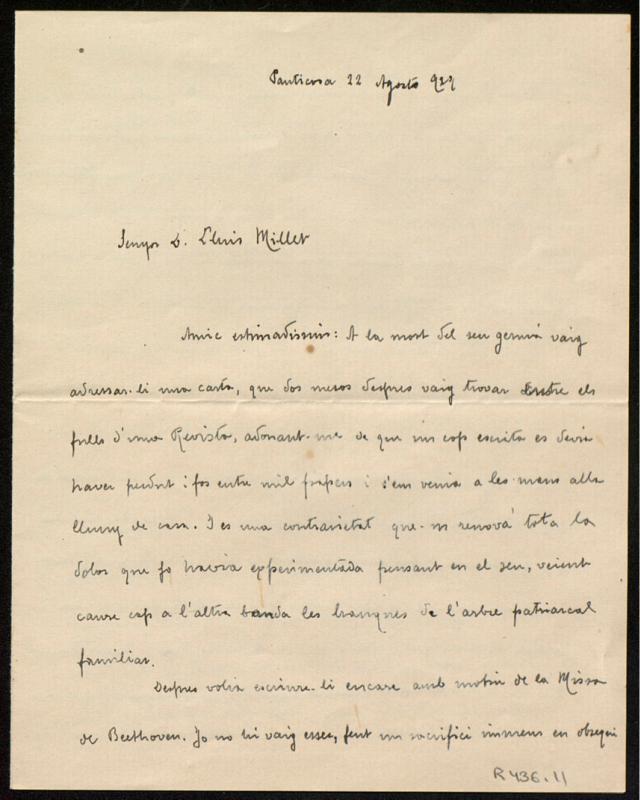 Panticosa 22 Agosto 927
Senyor D. Lluis Millet
Amic estimadissim: A la mort del seu germá vaig
adressar-li una carta, que dos mesos despres vaig trovar entre els
fulls d'una Revista, adonant-me de que un cop escrita es devia
haver perdut i fos entre mil papers i s'em venia a les mans alla
lluny de casa. I es una contrarietat que m renová tota la
dolor que jo havia experimentada pensant en el seu, veient
caure cap a l'altra banda les branques de l'arbre patriarcal
familiar.
Despres volia escriure-li encare amb motiu de la Missa
de Beethoven. Jo no hi vaig esser, fent un sacrifici immens en obsequi
R 436.11